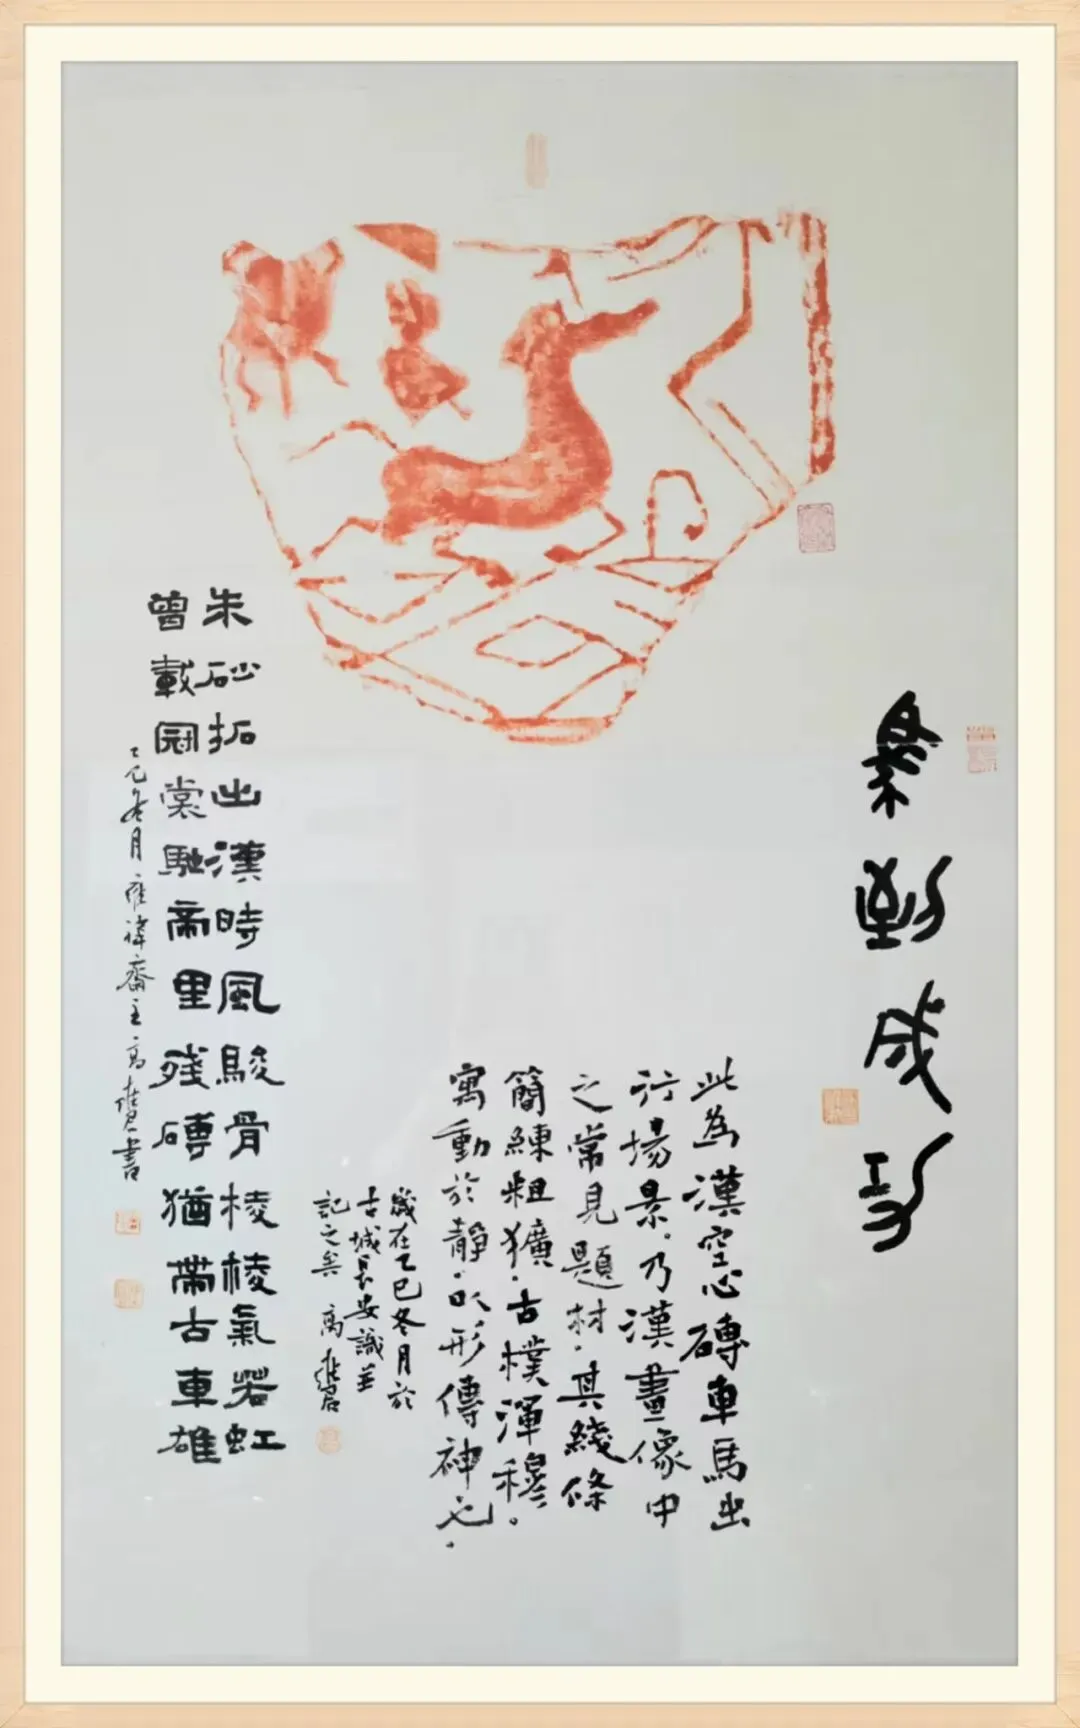 馬到成功
此為漢空心磚車馬出
行場景。乃漢畫像中
之常見題材.其綫條
簡練粗獷.古樸渾穆。
寓動於静.以形傳神也.
歲在乙巳冬月於
古城長安識並
記之矣 高
朱砂拓出漢時風駿骨棱棱氣若虹
曾載冠裳馳帝里殘磚猶帶古車雄
乙巳冬月 齋主高 書